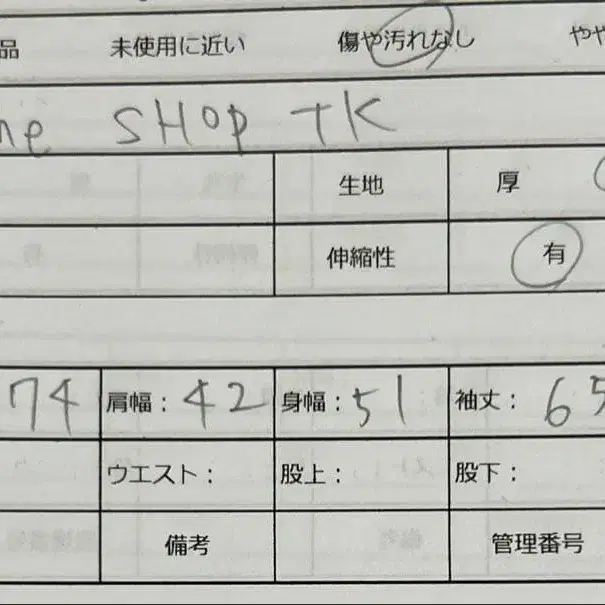 品 未使用に近い 傷や汚れなし やや
me SHOP TK
生地 厚
伸縮性 有
74 肩幅：42 身幅：51 袖丈：65
ウエスト： 股上： 股下：
備考 管理番号